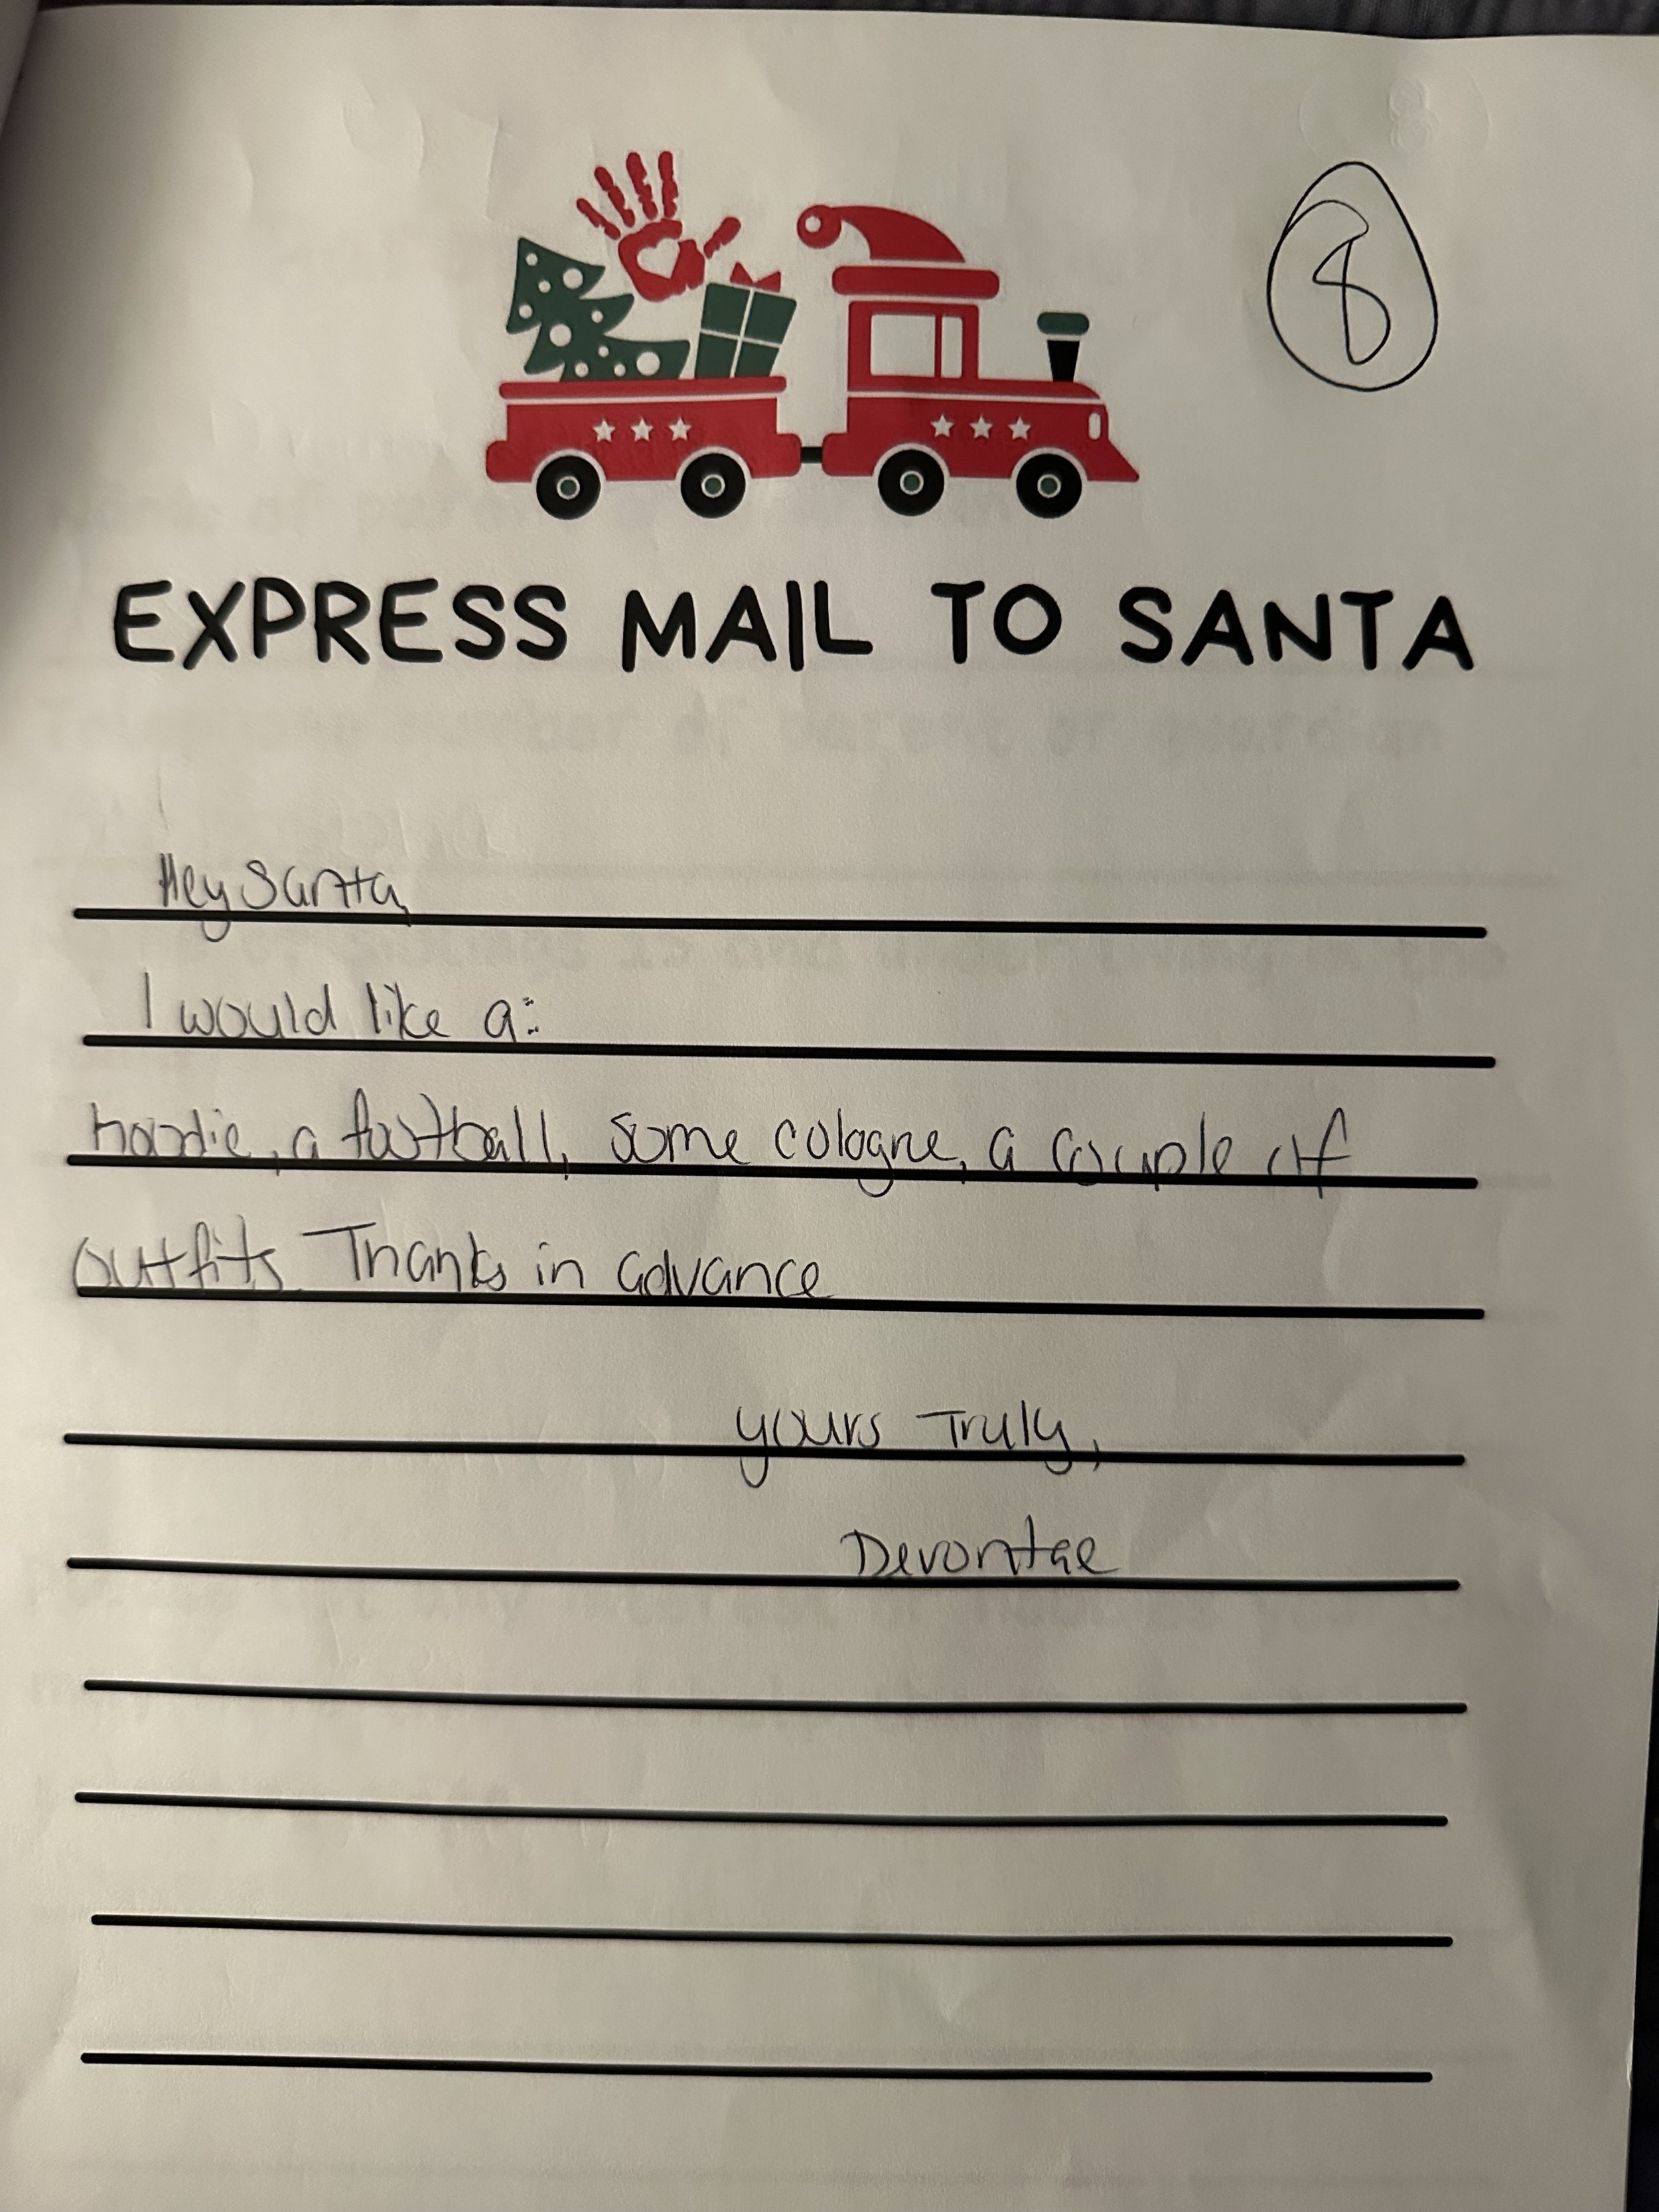 8
EXPRESS MAIL TO SANTA
Hey Santa,
I would like a:
hoodie, a football, some cologne, a couple of
outfits. Thanks in advance
yours Truly,
Devontae